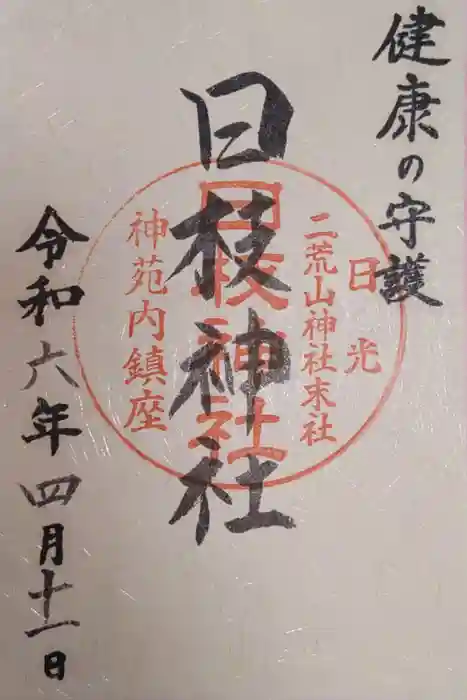 健康の守護
日光
二荒山神社末社
日枝神社
日枝神社
神苑内鎮座
令和六年四月十一日